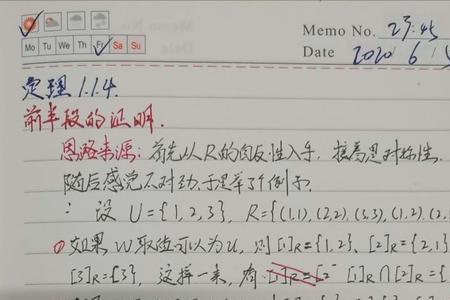 Memo No. 23:45
Mo Tu We Th Fr Sa Su
Date 2020 / 6 /
定理 1.1.4.
前半段的证明.
思路来源: 首先从R的自反性入手, 接着思对称性.
随后感觉不对劲,于是举了个例子.
∴ 设 U={1,2,3}, R={(1,1),(2,2),(3,3),(1,2),(2,
如果 u取值可以为u, 则 [1]R={1,2}, [2]R={2,1}
[3]R={3}, 这样一来, 有 [1]R=[2 [1]R∩[2]R={